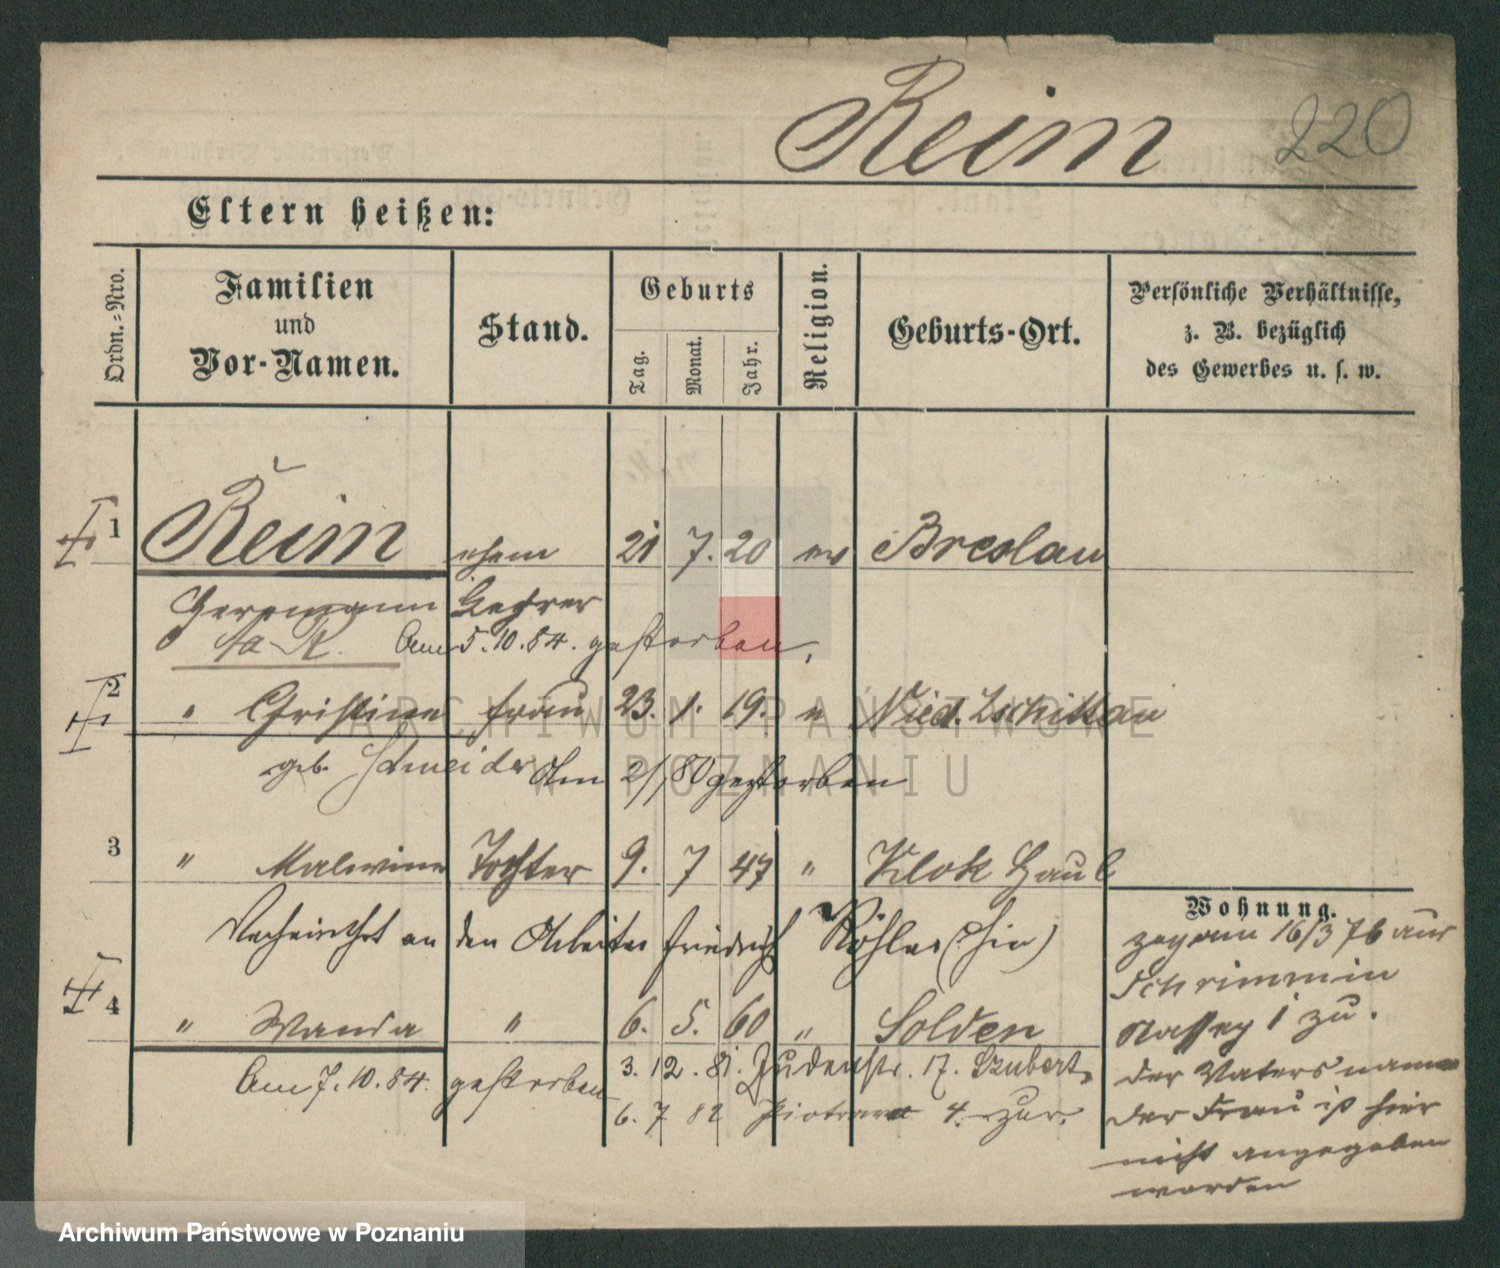 Reim 220
Eltern heißen:
Ordn.-Nro.
Familien
und
Vor-Namen.
Stand.
Geburts
Tag.
Monat.
Jahr.
Religion.
Geburts-Ort.
Persönliche Verhältnisse,
z. B. bezüglich
des Gewerbes u. s. w.
1 Reim ehem 21 7. 20 ev Breslau
Herrmann Lehrer
Am 5. 10. 84. gestorben.
2 " Christine Frau 23. 1. 19. "
geb. Schneider Am 2/1 80 gestorben
3 " Malwine Tochter 9. 7 47 "
Verheirathet an den Arbeiter Friedrich Köhler (hier)
4 " Wanda " 6. 5. 60 " Solden
Am 7. 10. 84. gestorben
3. 12. 81. Judenstr. 17. Szubert.
6. 7 82 4.
Wohnung.
zog am 16/3 76 aus
Schrimm in
1 zu.
der Vatersname
der Frau ist hier
nicht angegeben
worden
ARCHIWUM PAŃSTWOWE
W POZNANIU
Archiwum Państwowe w Poznaniu